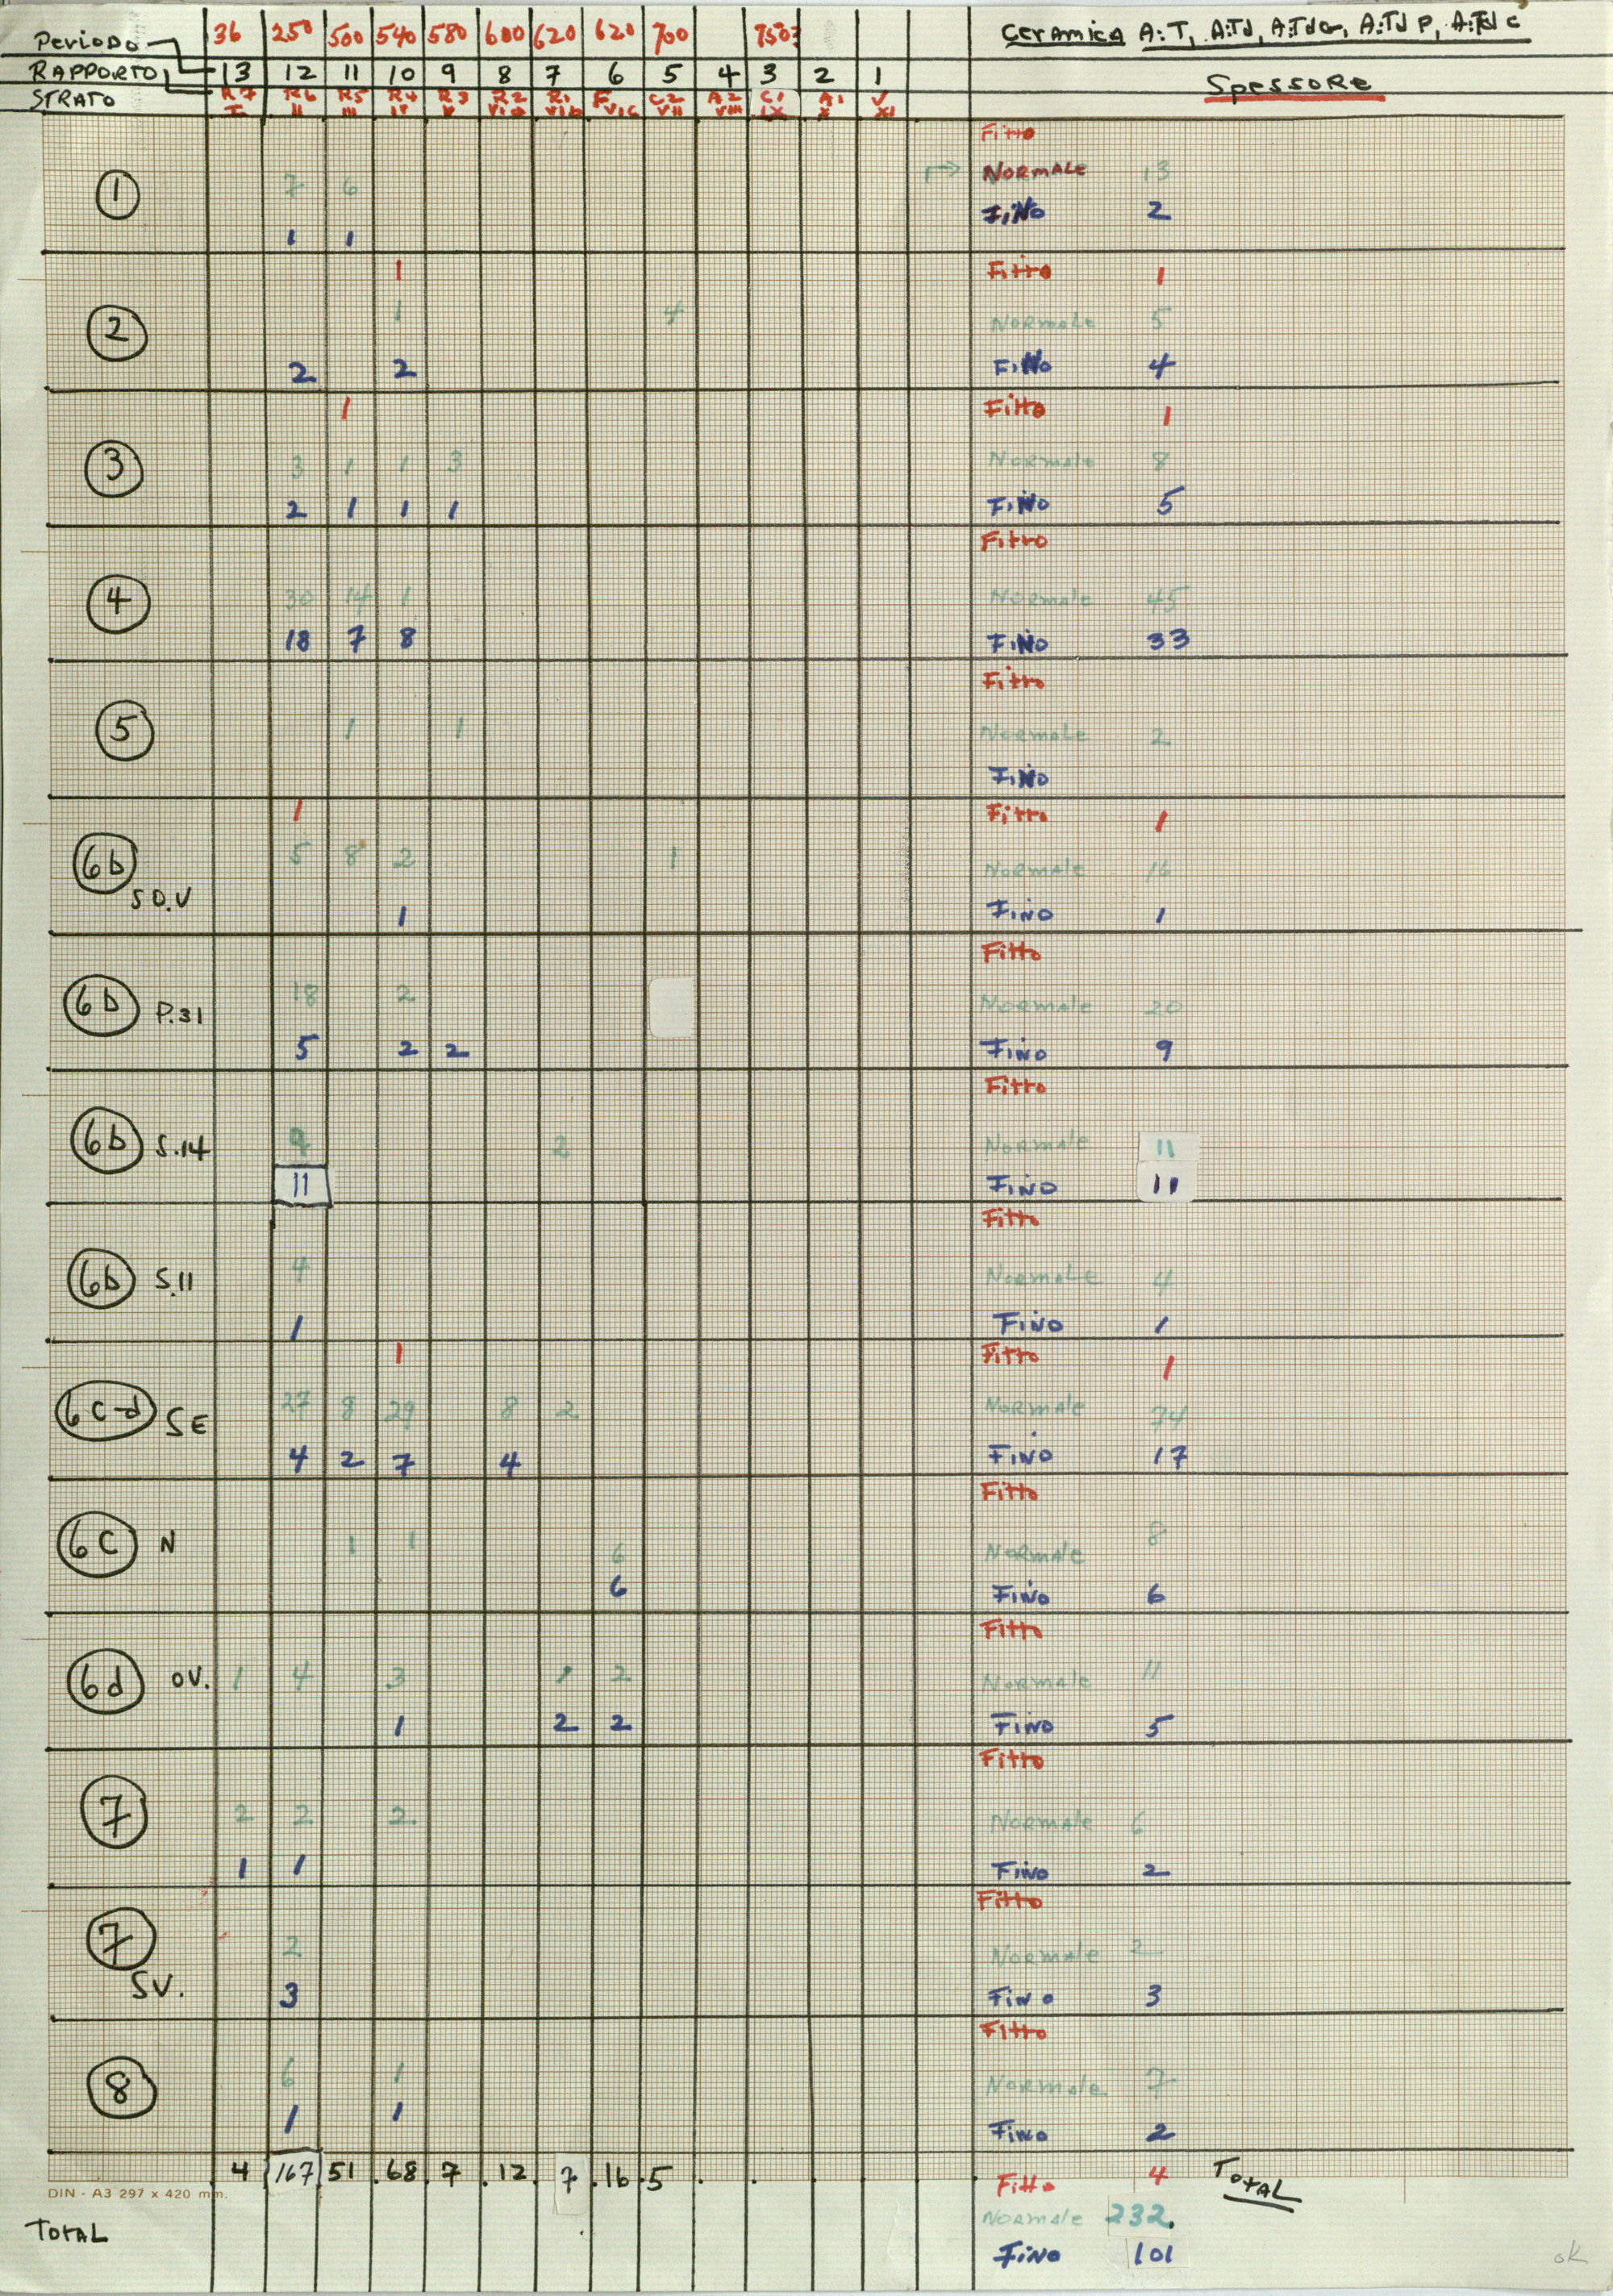 Periodo 36 250 500 540 580 600 620 620 700 750? Ceramica A:T, A:Td, A:Tda, A:Td P, A:Td c
RAPPORTO 13 12 11 10 9 8 7 6 5 4 3 2 1 Spessore
STRATO R7 R6 R5 R4 R3 R2 R1 F C2 A2 C1 A1 V
I II III IV V VIa VIb VIc VII VIII IX X XI
Fitto
1 7 6 NORMALE 13
1 1 FiNo 2
1 Fitto 1
2 1 4 NORMALE 5
2 2 FiNo 4
1 Fitto 1
3 3 1 1 3 NORMALE 8
2 1 1 1 FiNo 5
Fitto
4 30 14 1 NORMALE 45
18 7 8 FiNo 33
Fitto
5 1 1 NORMALE 2
FiNo
1 Fitto 1
6b SO.V 5 8 2 1 NORMALE 16
1 FiNo 1
Fitto
6b P.31 18 2 NORMALE 20
5 2 2 FiNo 9
Fitto
6b S.14 9 2 NORMALE 11
11 FiNo 11
Fitto
6b S.11 4 NORMALE 4
1 FiNo 1
1 Fitto 1
6c-d SE 27 8 29 8 2 NORMALE 74
4 2 7 4 FiNo 17
Fitto
6c N 1 1 6 NORMALE 8
6 FiNo 6
Fitto
6d OV. 1 4 3 1 2 NORMALE 11
1 2 2 FiNo 5
Fitto
7 2 2 2 NORMALE 6
1 1 FiNo 2
Fitto
7 SV. 2 NORMALE 2
3 FiNo 3
Fitto
8 6 1 NORMALE 7
1 1 FiNo 2
4 167 51 68 7 12 7 16 5 Fitto 4 TOTAL
DIN - A3 297 x 420 mm.
TOTAL NORMALE 232.
FiNo 101
ok